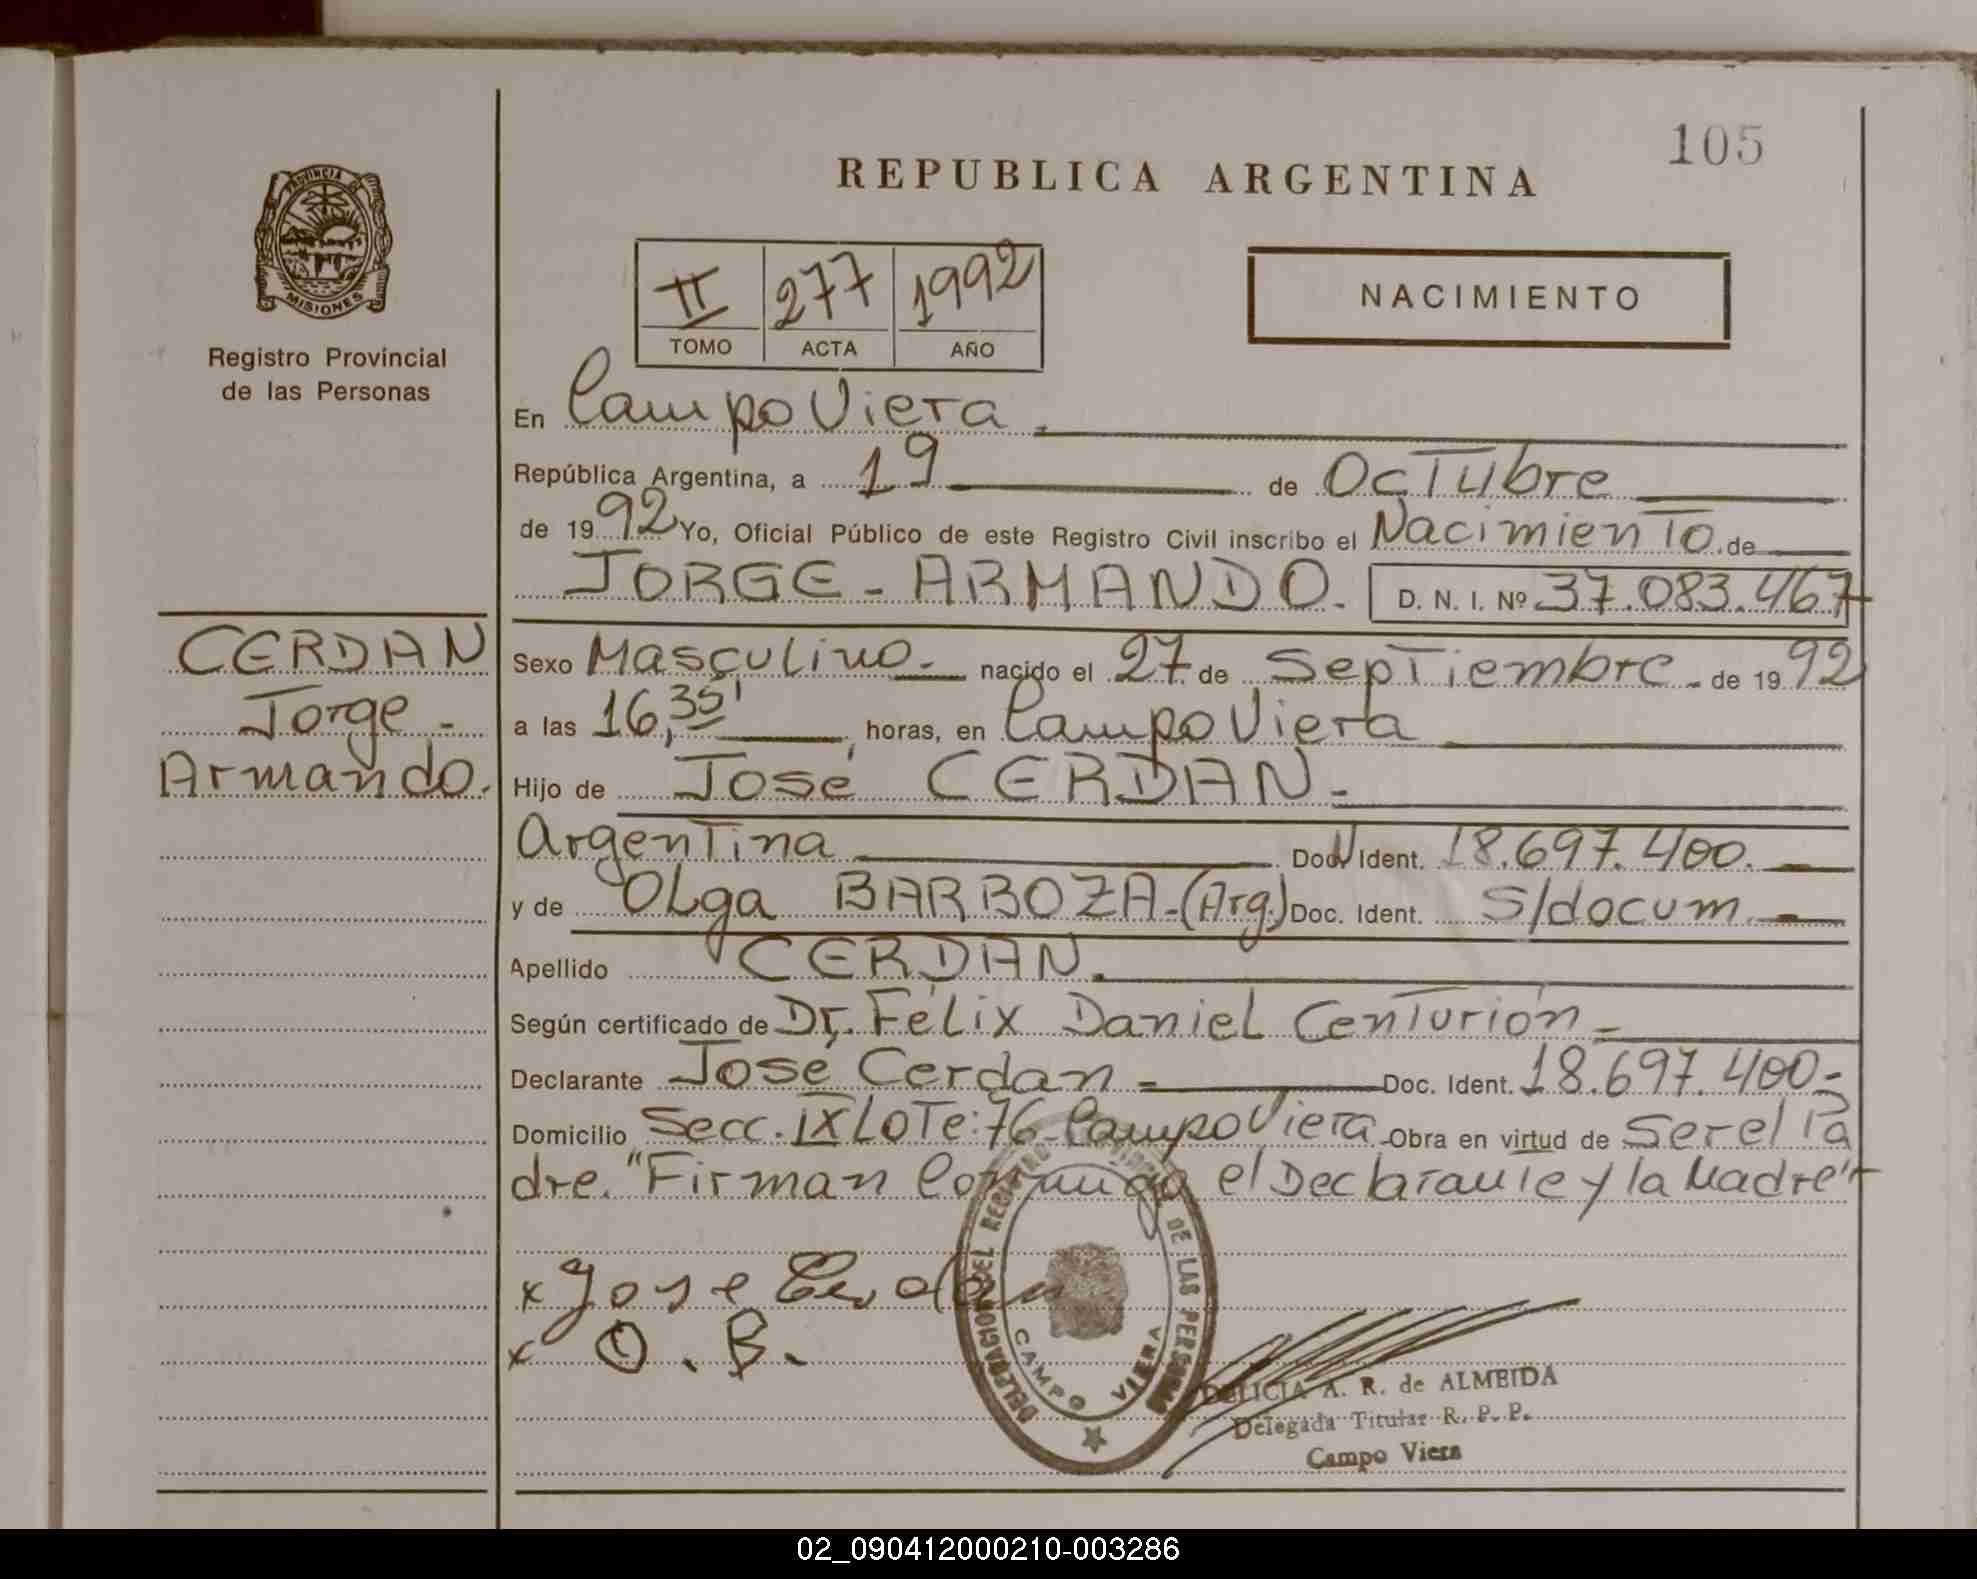 105
REPUBLICA ARGENTINA
PROVINCIA DE
MISIONES
Registro Provincial
de las Personas
II 277 1992
TOMO ACTA AÑO
NACIMIENTO
En Campo Viera.
República Argentina, a 19 de Octubre
de 1992 Yo, Oficial Público de este Registro Civil inscribo el Nacimiento de
JORGE - ARMANDO. D. N. I. Nº 37.083.467
CERDAN
Jorge -
Armando.
Sexo Masculino.- nacido el 27 de Septiembre - de 1992
a las 16,35' horas, en Campo Viera
Hijo de José CERDAN.-
Argentina Doc. Ident. 18.697.400.
y de Olga BARBOZA.-(Arg.) Doc. Ident. S/docum.
Apellido CERDAN.
Según certificado de Dr. Félix Daniel Centurión -
Declarante José Cerdan - Doc. Ident. 18.697.400-
Domicilio Secc. IX Lote: 76 - Campo Viera - Obra en virtud de Ser el Pa
dre. "Firman Conmigo el Declarante y la Madre"
x Jose Cerdan
x O. B.
DELEGACION DEL REGISTRO PROVINCIAL DE LAS PERSONAS
CAMPO VIERA
DELICIA A. R. de ALMEIDA
Delegada Titular R. P. P.
Campo Viera
02_090412000210-003286